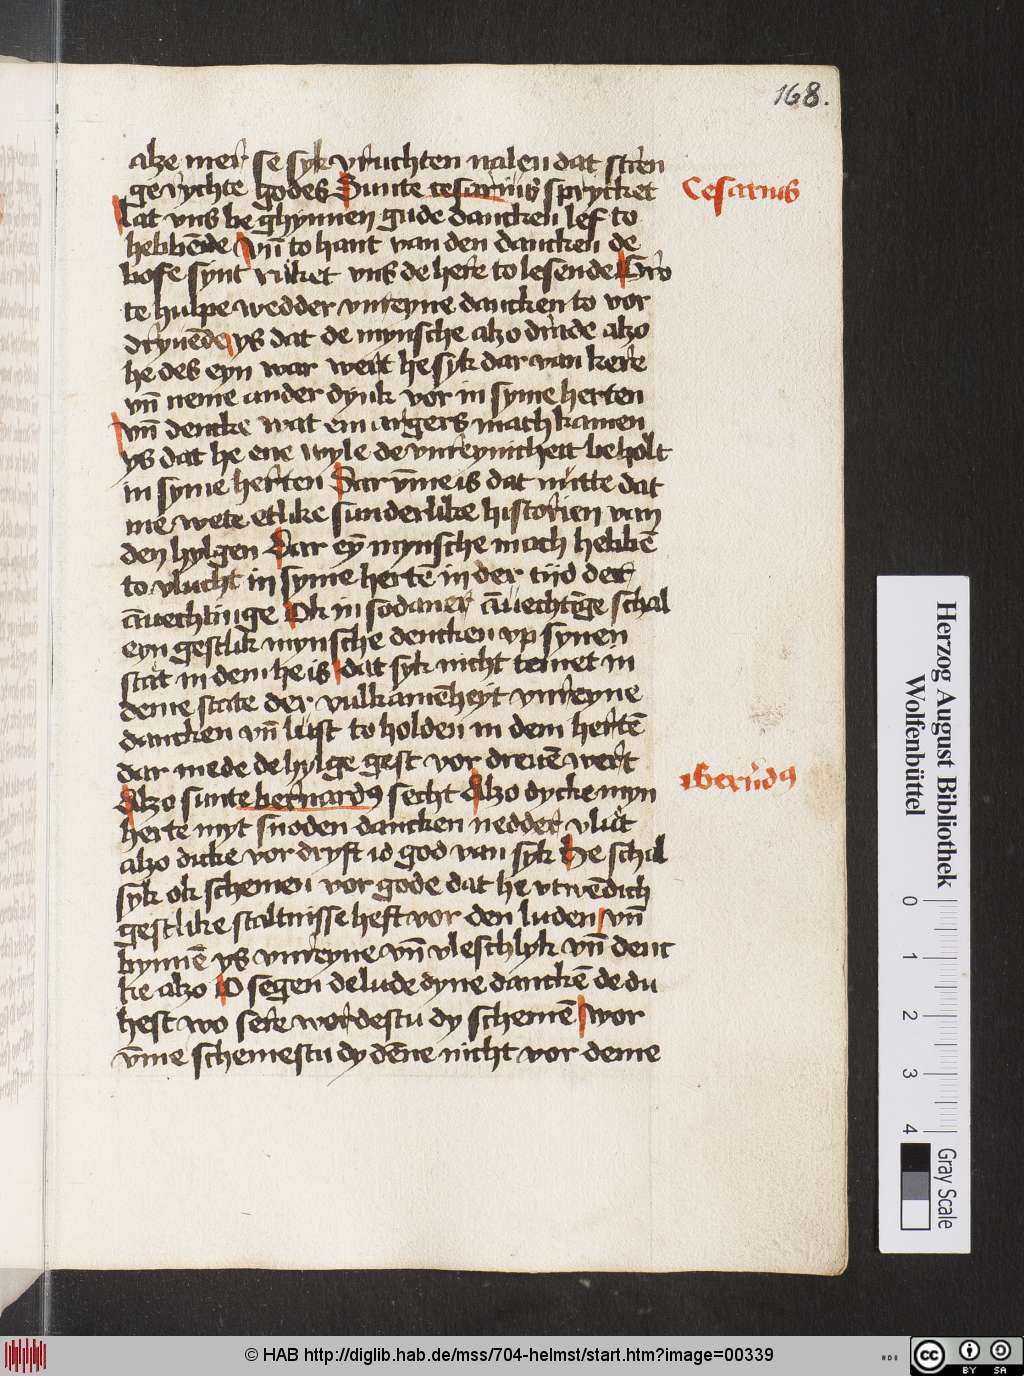 168.
alze mer se syk vruchten nalen dat stren
ge rychte godes Sunte cesarius sprycket
Cesarius
Lat vns be ghynnen gude dancken lef to
hebbēde vn̄ to hant van den dancken de
bose synt rucket vns de here to lesende Gro
te hulpe wedder vnreyne dancken to vor
dryuēde ys dat de mynsche alzo drade alzo
he des eyn war wert he syk dar van kere
vn̄ neme ander dynk vor in syme herten
vn̄ dencke wat em argers mach kamen
ys dat he ene wyle de vnreynicheit beholt
in syme herten Dar v̄me is dat nutte dat
me wete etlike sunderlike historien van
den hylgen Dar eȳ mynsche mach hebbē
to vlucht in syme hertē in der tijd der
āuechtinge Ok in sodaner āuechtīge schal
eyn gestlik mynsche dencken vp synen
stat in dem he is dat syk nicht temet in
deme state der vulkamēheyt vnreyne
dancken vn̄ lust to holden in dem hertē
dar mede de hylge gest vor dreuē wert
Alzo sunte bernardꝰ secht Alzo dycke myn
Bernͬdꝰ
herte myt snoden dancken nedder vlut
alzo dicke vor dryft id god van syk He schal
syk ok schemen vor gode dat he vtwēdich
gestlike staltnisse heft vor den luden vn̄
bynnē ys vnreyne vn̄ vleschlyk vn̄ denc
ke alzo O segen de lude dyne danckē de du
hest wo sere wordestu dy schemē wor
v̄me schemestu dy dēne nicht vor deme
Herzog August Bibliothek
Wolfenbüttel
0 1 2 3 4
Gray Scale
© HAB http://diglib.hab.de/mss/704-helmst/start.htm?image=00339
HAB
cc BY SA